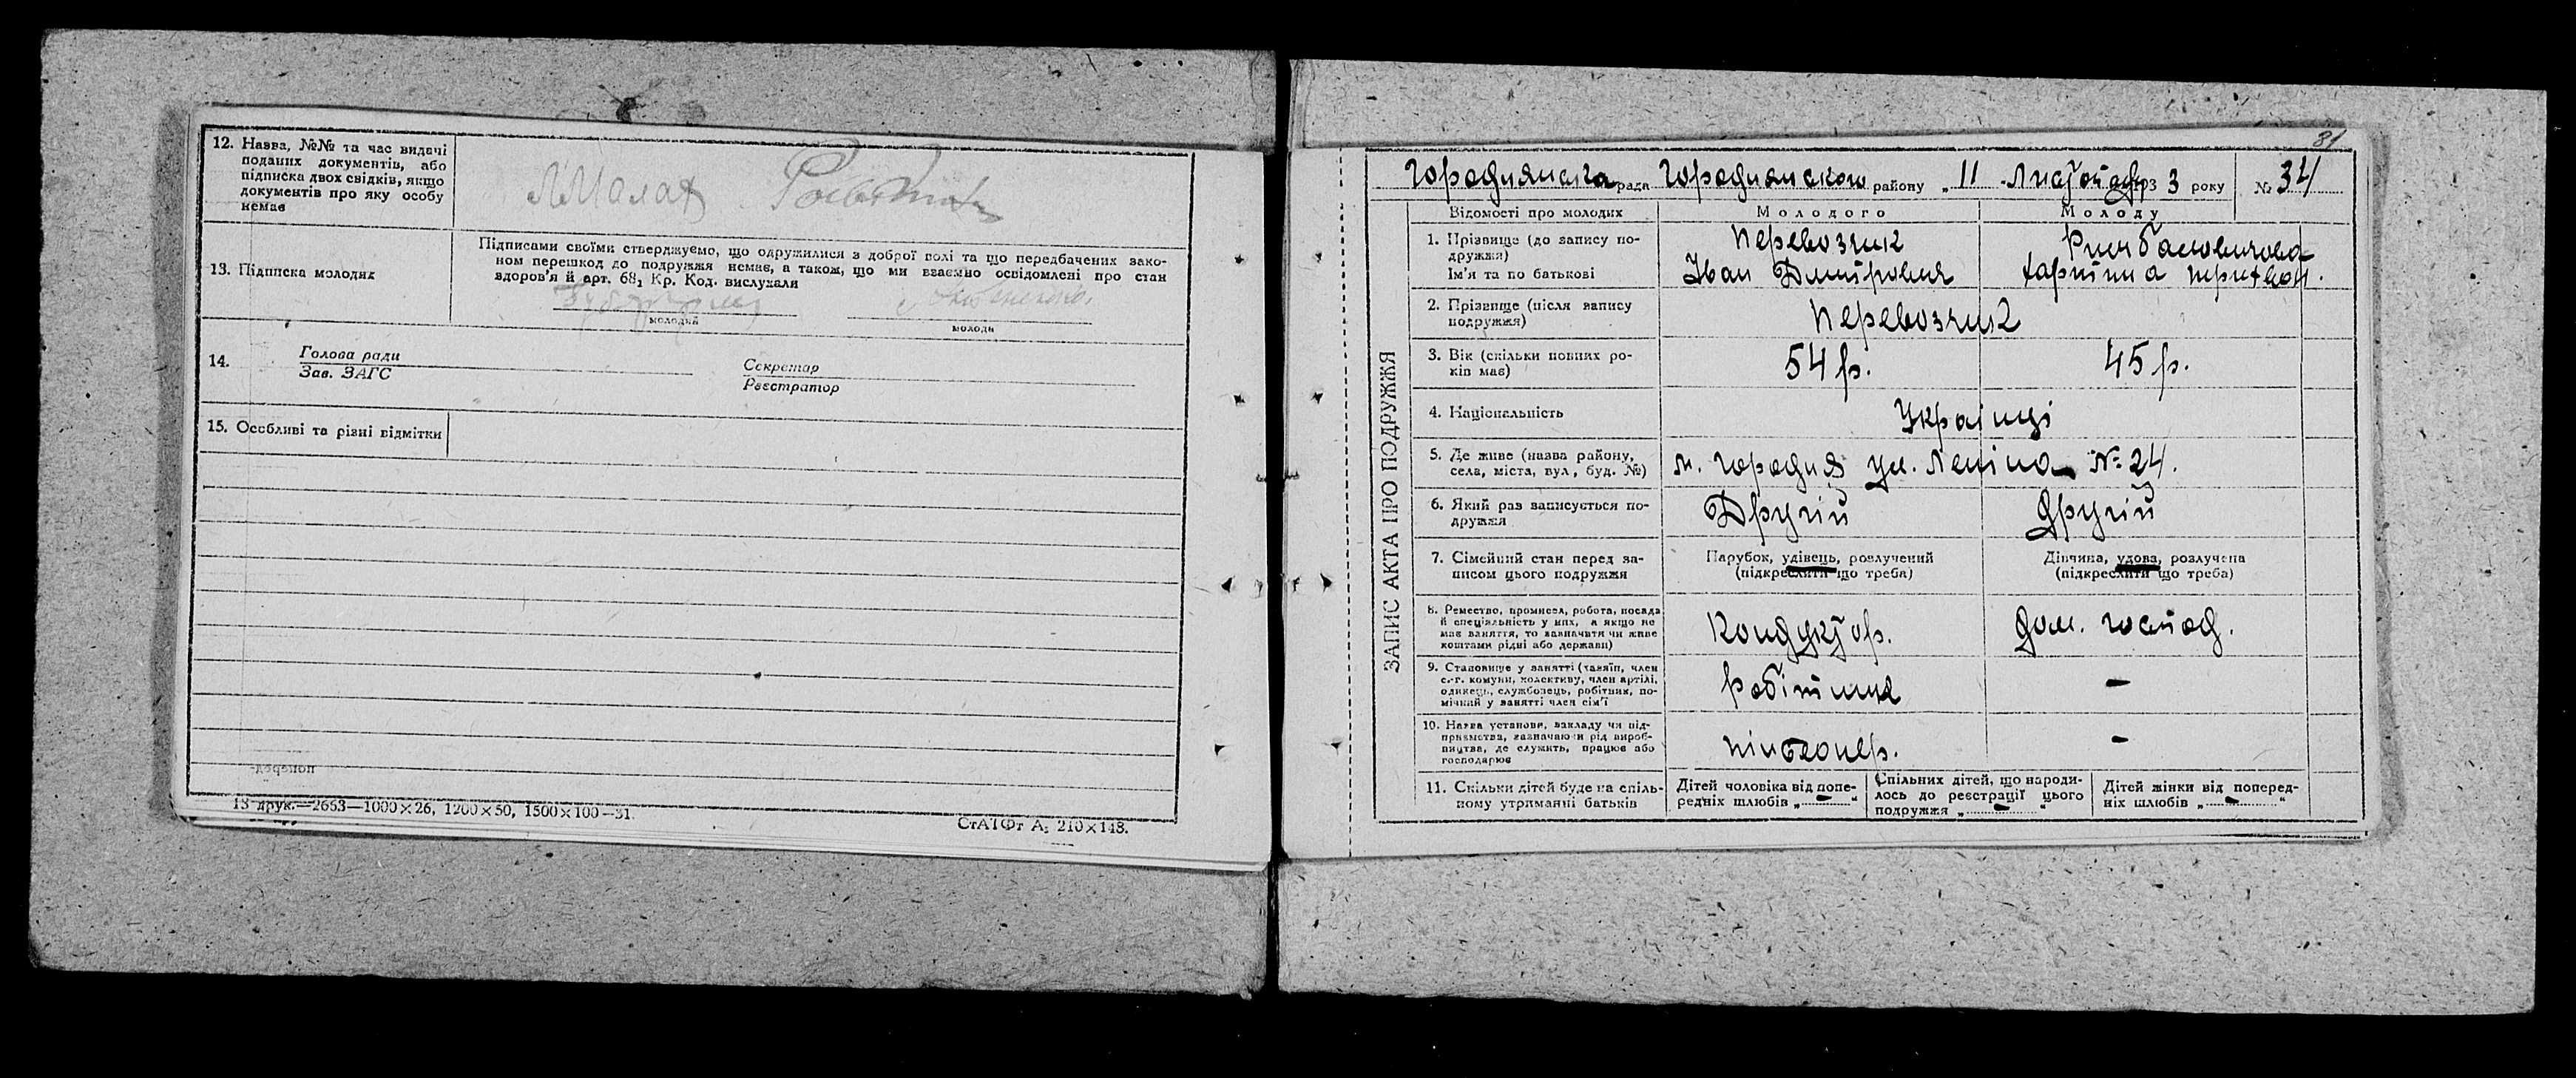 12. Назва, №№ та час видачі
поданих документів, або
підписка двох свідків, якщо
документів про яку особу
немає
13. Підписка молодих
Підписами своїми стверджуємо, що одружилися з доброї волі та що передбачених зако-
ном перешкод до подружжя немає, а також, що ми взаємно освідомлені про стан
здоров'я й арт. 68₁ Кр. Код. вислухали
молодий
молода
14.
Голова ради
Зав. ЗАГС
Секретар
Реєстратор
15. Особливі та різні відмітки
13 друк.—2663—1000×26, 1200×50, 1500×100—31.
СтАТФт А₅ 210×148.
31
Городнянська рада Городнянского району „11 Листопад 193 3 року № 34
ЗАПИС АКТА ПРО ПОДРУЖЖЯ
Відомості про молодих
Молодого
Молоду
1. Прізвище (до запису по-
дружжя)
Ім'я та по батькові
Перевозчик
Іван Дмитрович
2. Прізвище (після запису
подружжя)
Перевозчик
3. Вік (скільки повних ро-
ків має)
54 р.
45 р.
4. Національність
Українці
5. Де живе (назва району,
села, міста, вул, буд. №)
м. Городня ул. Леніна № 24.
6. Який раз записується по-
дружжя
Другій
Другій
7. Сімейний стан перед за-
писом цього подружжя
Парубок, удівець, розлучений
(підкреслити що треба)
Дівчина, удова, розлучена
(підкреслити що треба)
8. Ремество, промисел, робота, посада
й спеціяльність у них, а якщо не
має заняття, то зазначити чи живе
коштами рідні або держави)
Кондуктор.
дом. господ.
9. Становище у занятті (хазяїн, член
с.-г. комуни, колективу, член артілі,
одинець, службовець, робітник, по-
мічний у занятті член сім'ї
Робітник
—
10. Назва установи, закладу чи під-
приємства, зазначаючи рід вироб-
ництва, де служить, працює або
господарює
—
11. Скільки дітей буде на спіль-
ному утриманні батьків
Дітей чоловіка від попе-
редніх шлюбів „ — “
Спільних дітей, що народи-
лось до реєстрації цього
подружжя „ — “
Дітей жінки від поперед-
ніх шлюбів „ — “